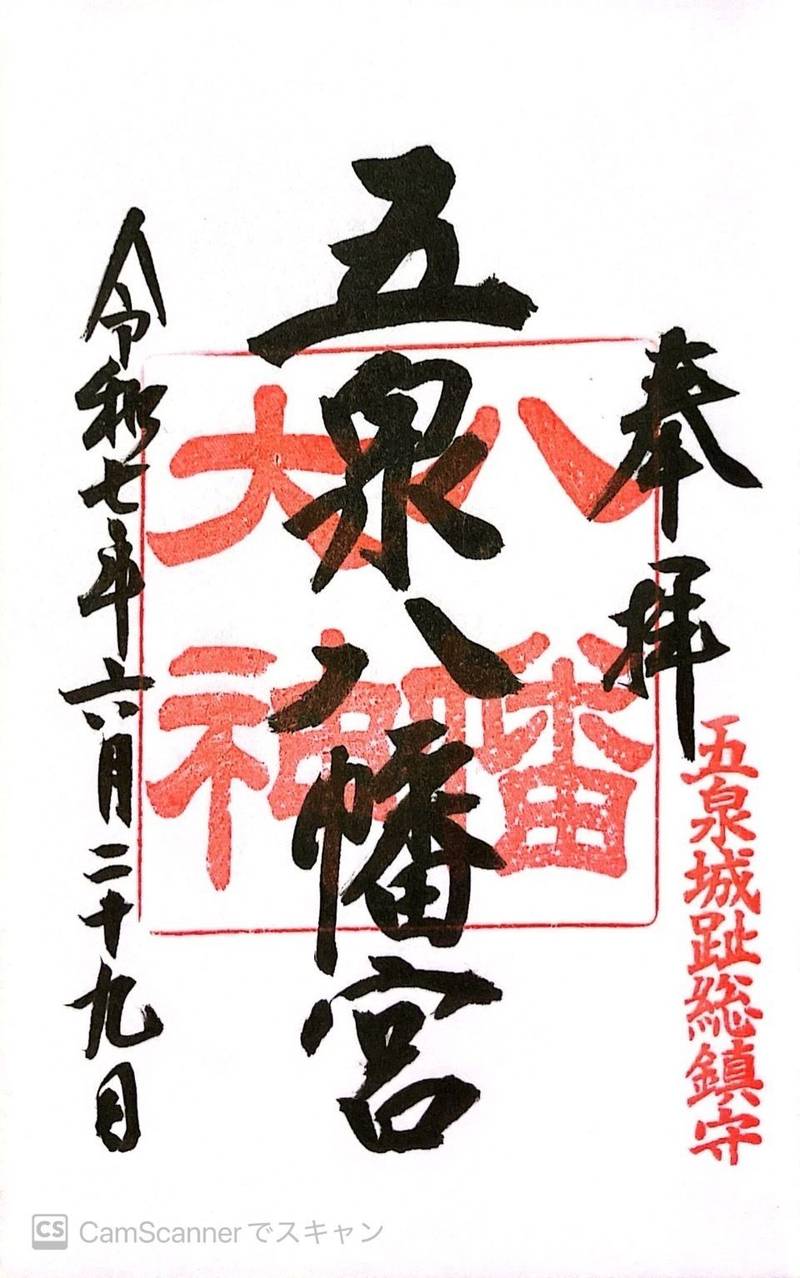 奉拝
五泉城趾総鎮守
五泉八幡宮
八幡
大神
令和七年六月二十九日
CS CamScannerでスキャン